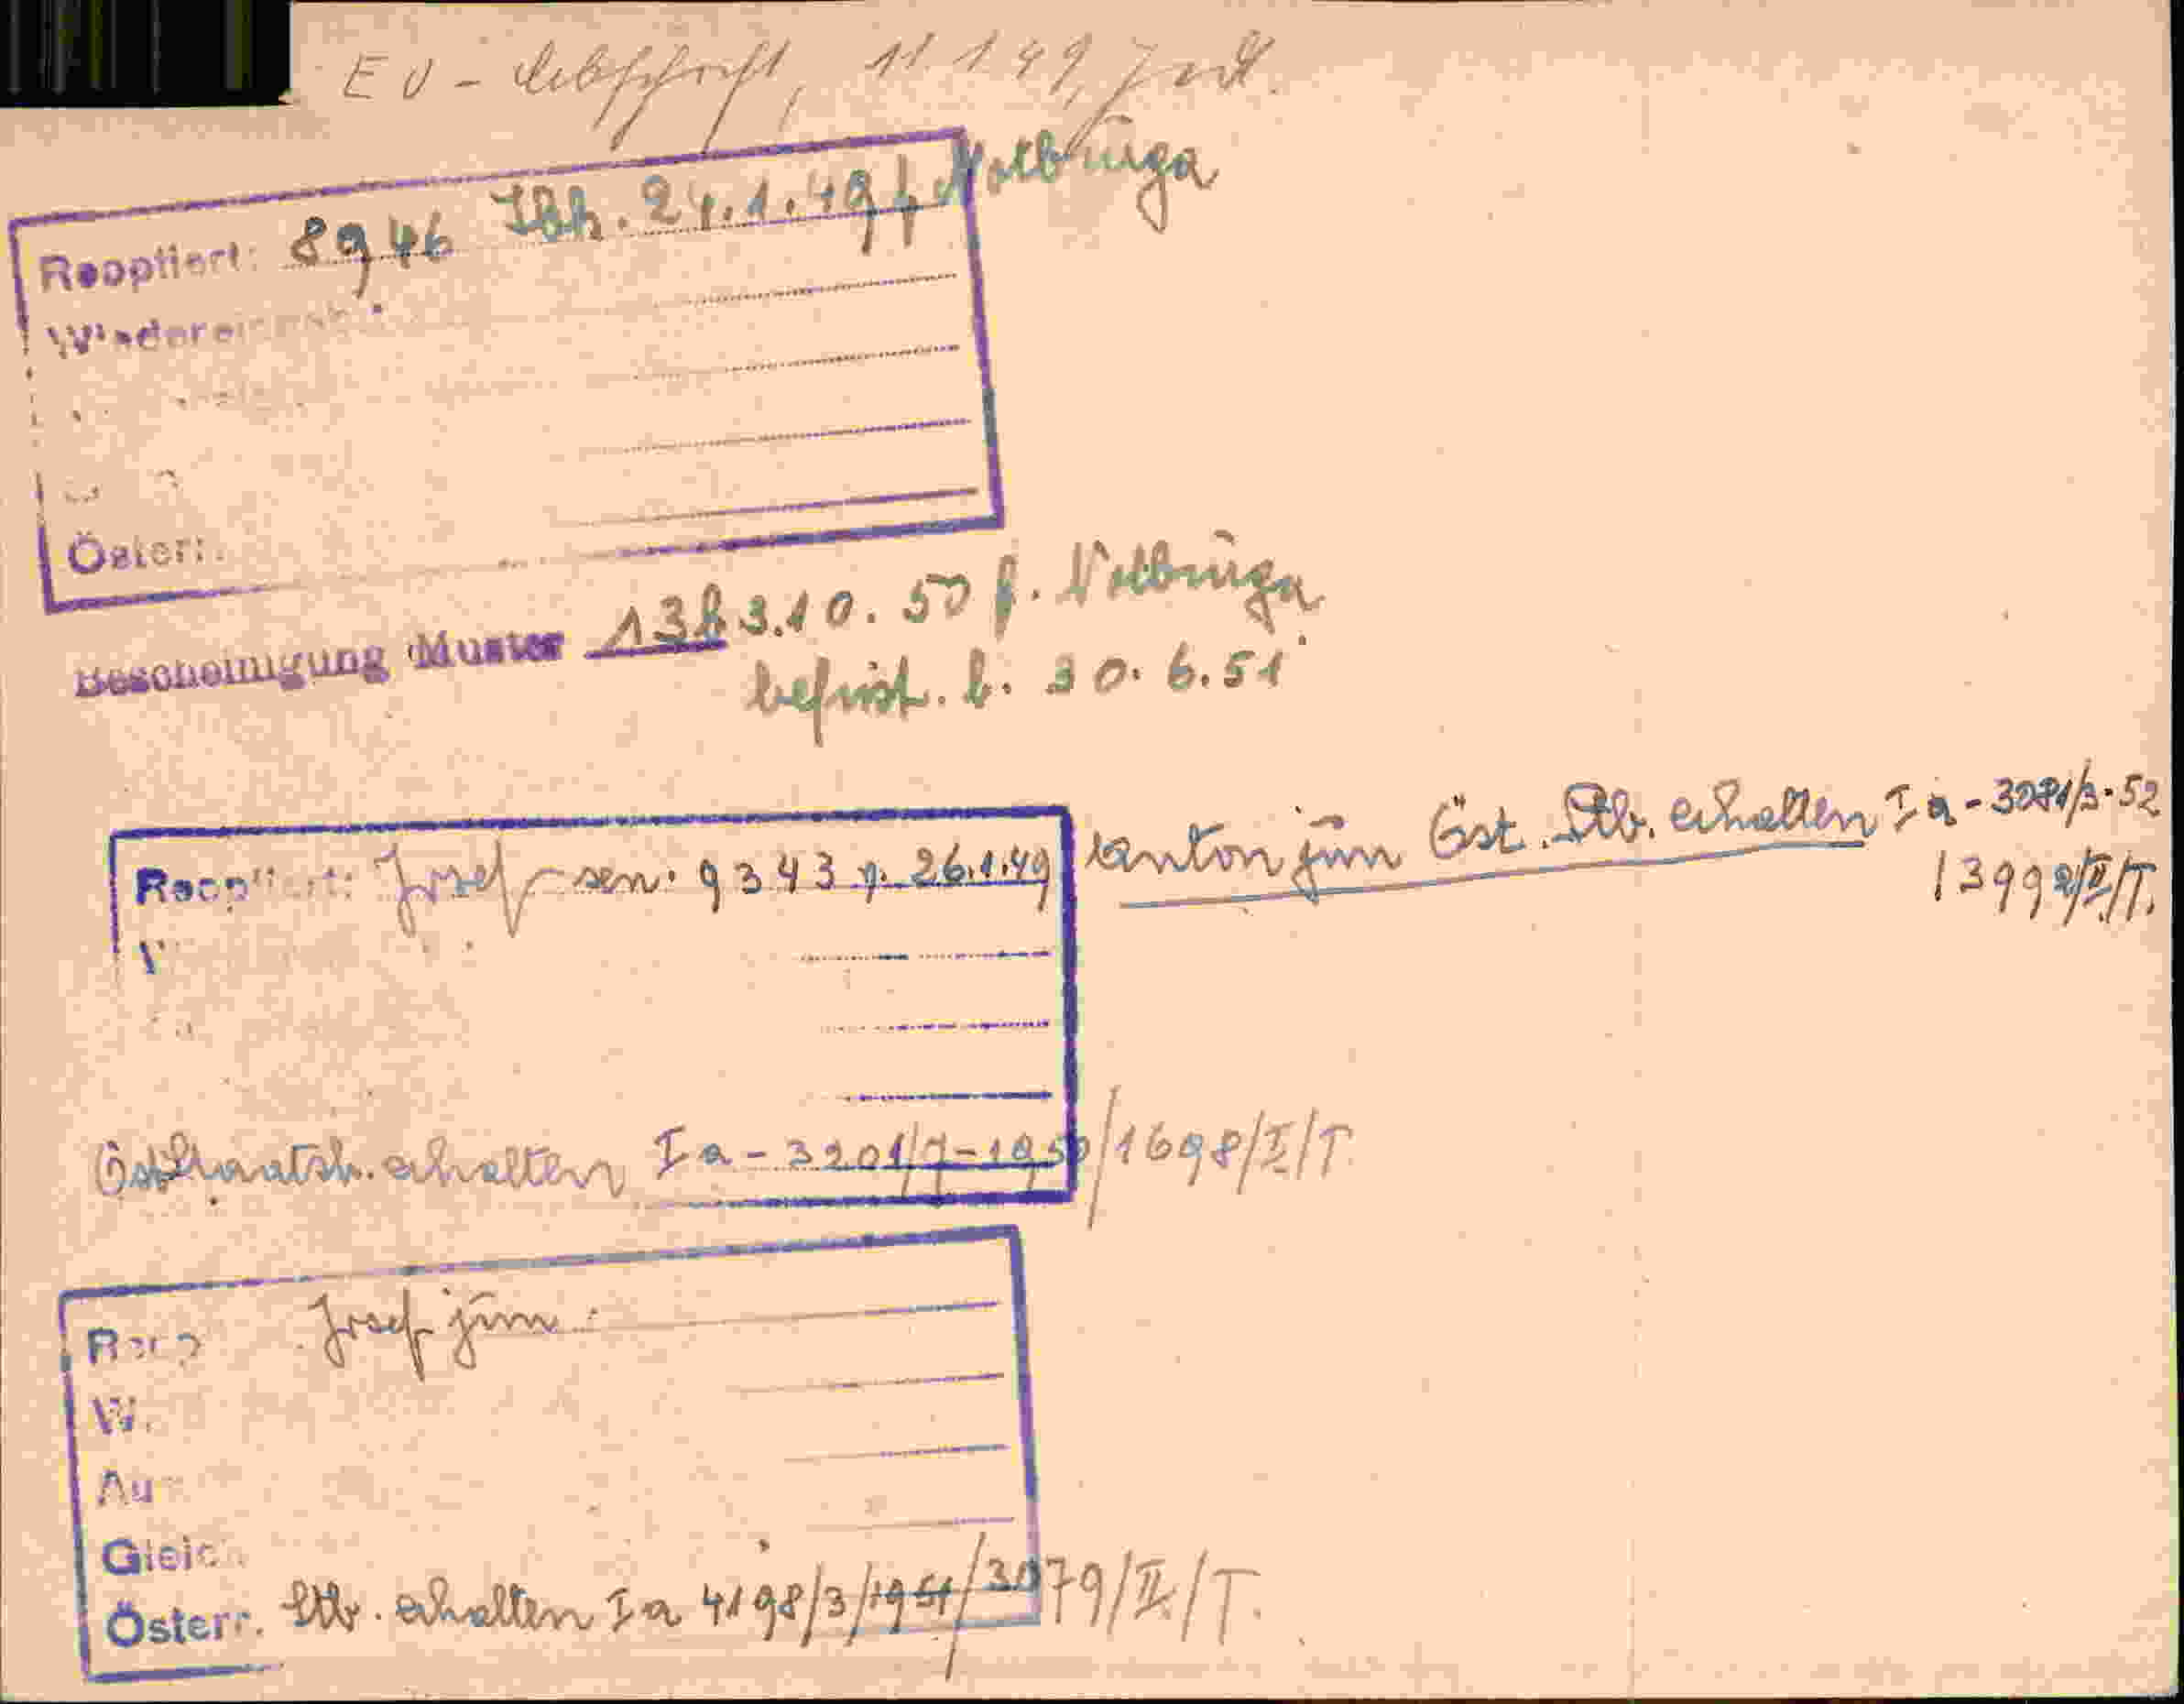 EV - Abschrift, 11.1.49,
Reoptiert: 8946 Ibk. 24.1.49 f. Notburga
Bescheinigung Muster 13b 3.10.50 f. Notburga
befrist. b. 30.6.51
Reoptiert: Josef sen. 9343 v. 26.1.49
Anton jün Öst. Stb. erhalten Ia-3081/3-52
13992/II/T.
Öst Staatsb. erhalten Ia-3201/7-1950/1698/I/T.
Josef jün.
W.
Au
Gleich
Österr. Stb. erhalten Ia 4198/3/1951/3079/II/T.